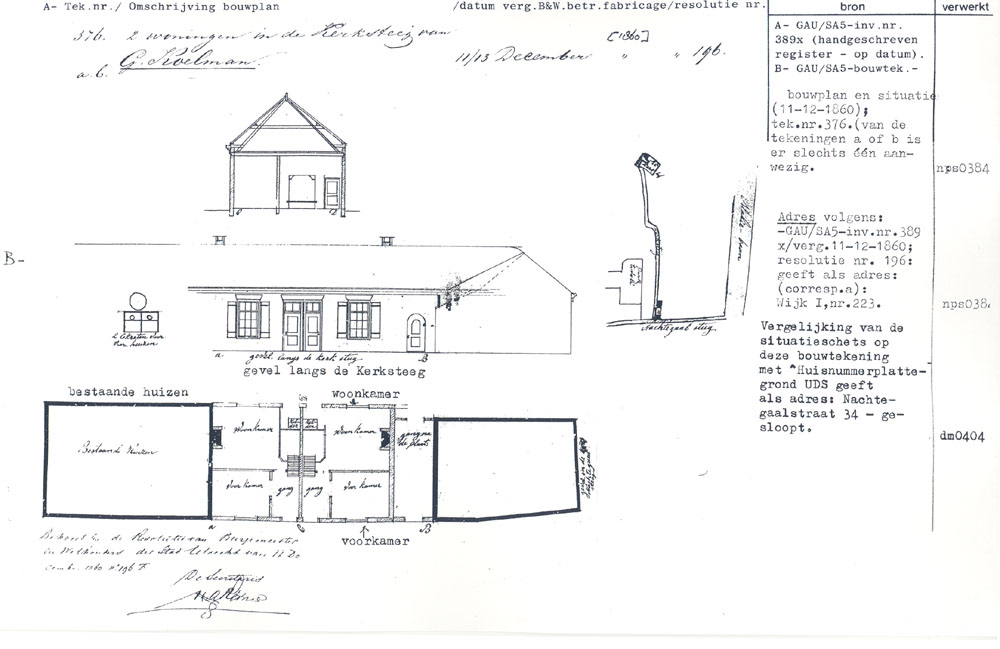 A- Tek.nr./ Omschrijving bouwplan /datum verg.B&W.betr.fabricage/resolutie nr.
bron
verwerkt
376. 2 woningen in de Kerksteeg van [1860]
a.b. G. Koelman. 11/13 December " " 196.
A- GAU/SA5-inv.nr.
389x (handgeschreven
register - op datum).
B- GAU/SA5-bouwtek.-
bouwplan en situatie
(11-12-1860);
tek.nr.376.(van de
tekeningen a of b is
er slechts één aan-
wezig.
nps0384
Adres volgens:
-GAU/SA5-inv.nr.389
x/verg.11-12-1860;
resolutie nr. 196:
geeft als adres:
(corresp.a):
Wijk I,nr.223.
nps038
Vergelijking van de
situatieschets op
deze bouwtekening
met "Huisnummerplatte-
grond UDS geeft
als adres: Nachte-
gaalstraat 34 - ge-
sloopt.
dm0404
B-
Nachtegaal steeg
a gevel langs de kerk steeg B
gevel langs de Kerksteeg
bestaande huizen
woonkamer
Bestaande huizen
Woonkamer
Woonkamer
Voor kamer
gang
gang
Voor kamer
a
C
B
voorkamer
Behoort bij de Resolutie van Burgemeester
en Wethouders der Stad Utrecht van 11 De
cember 1860 No 196 F
De Secretaris